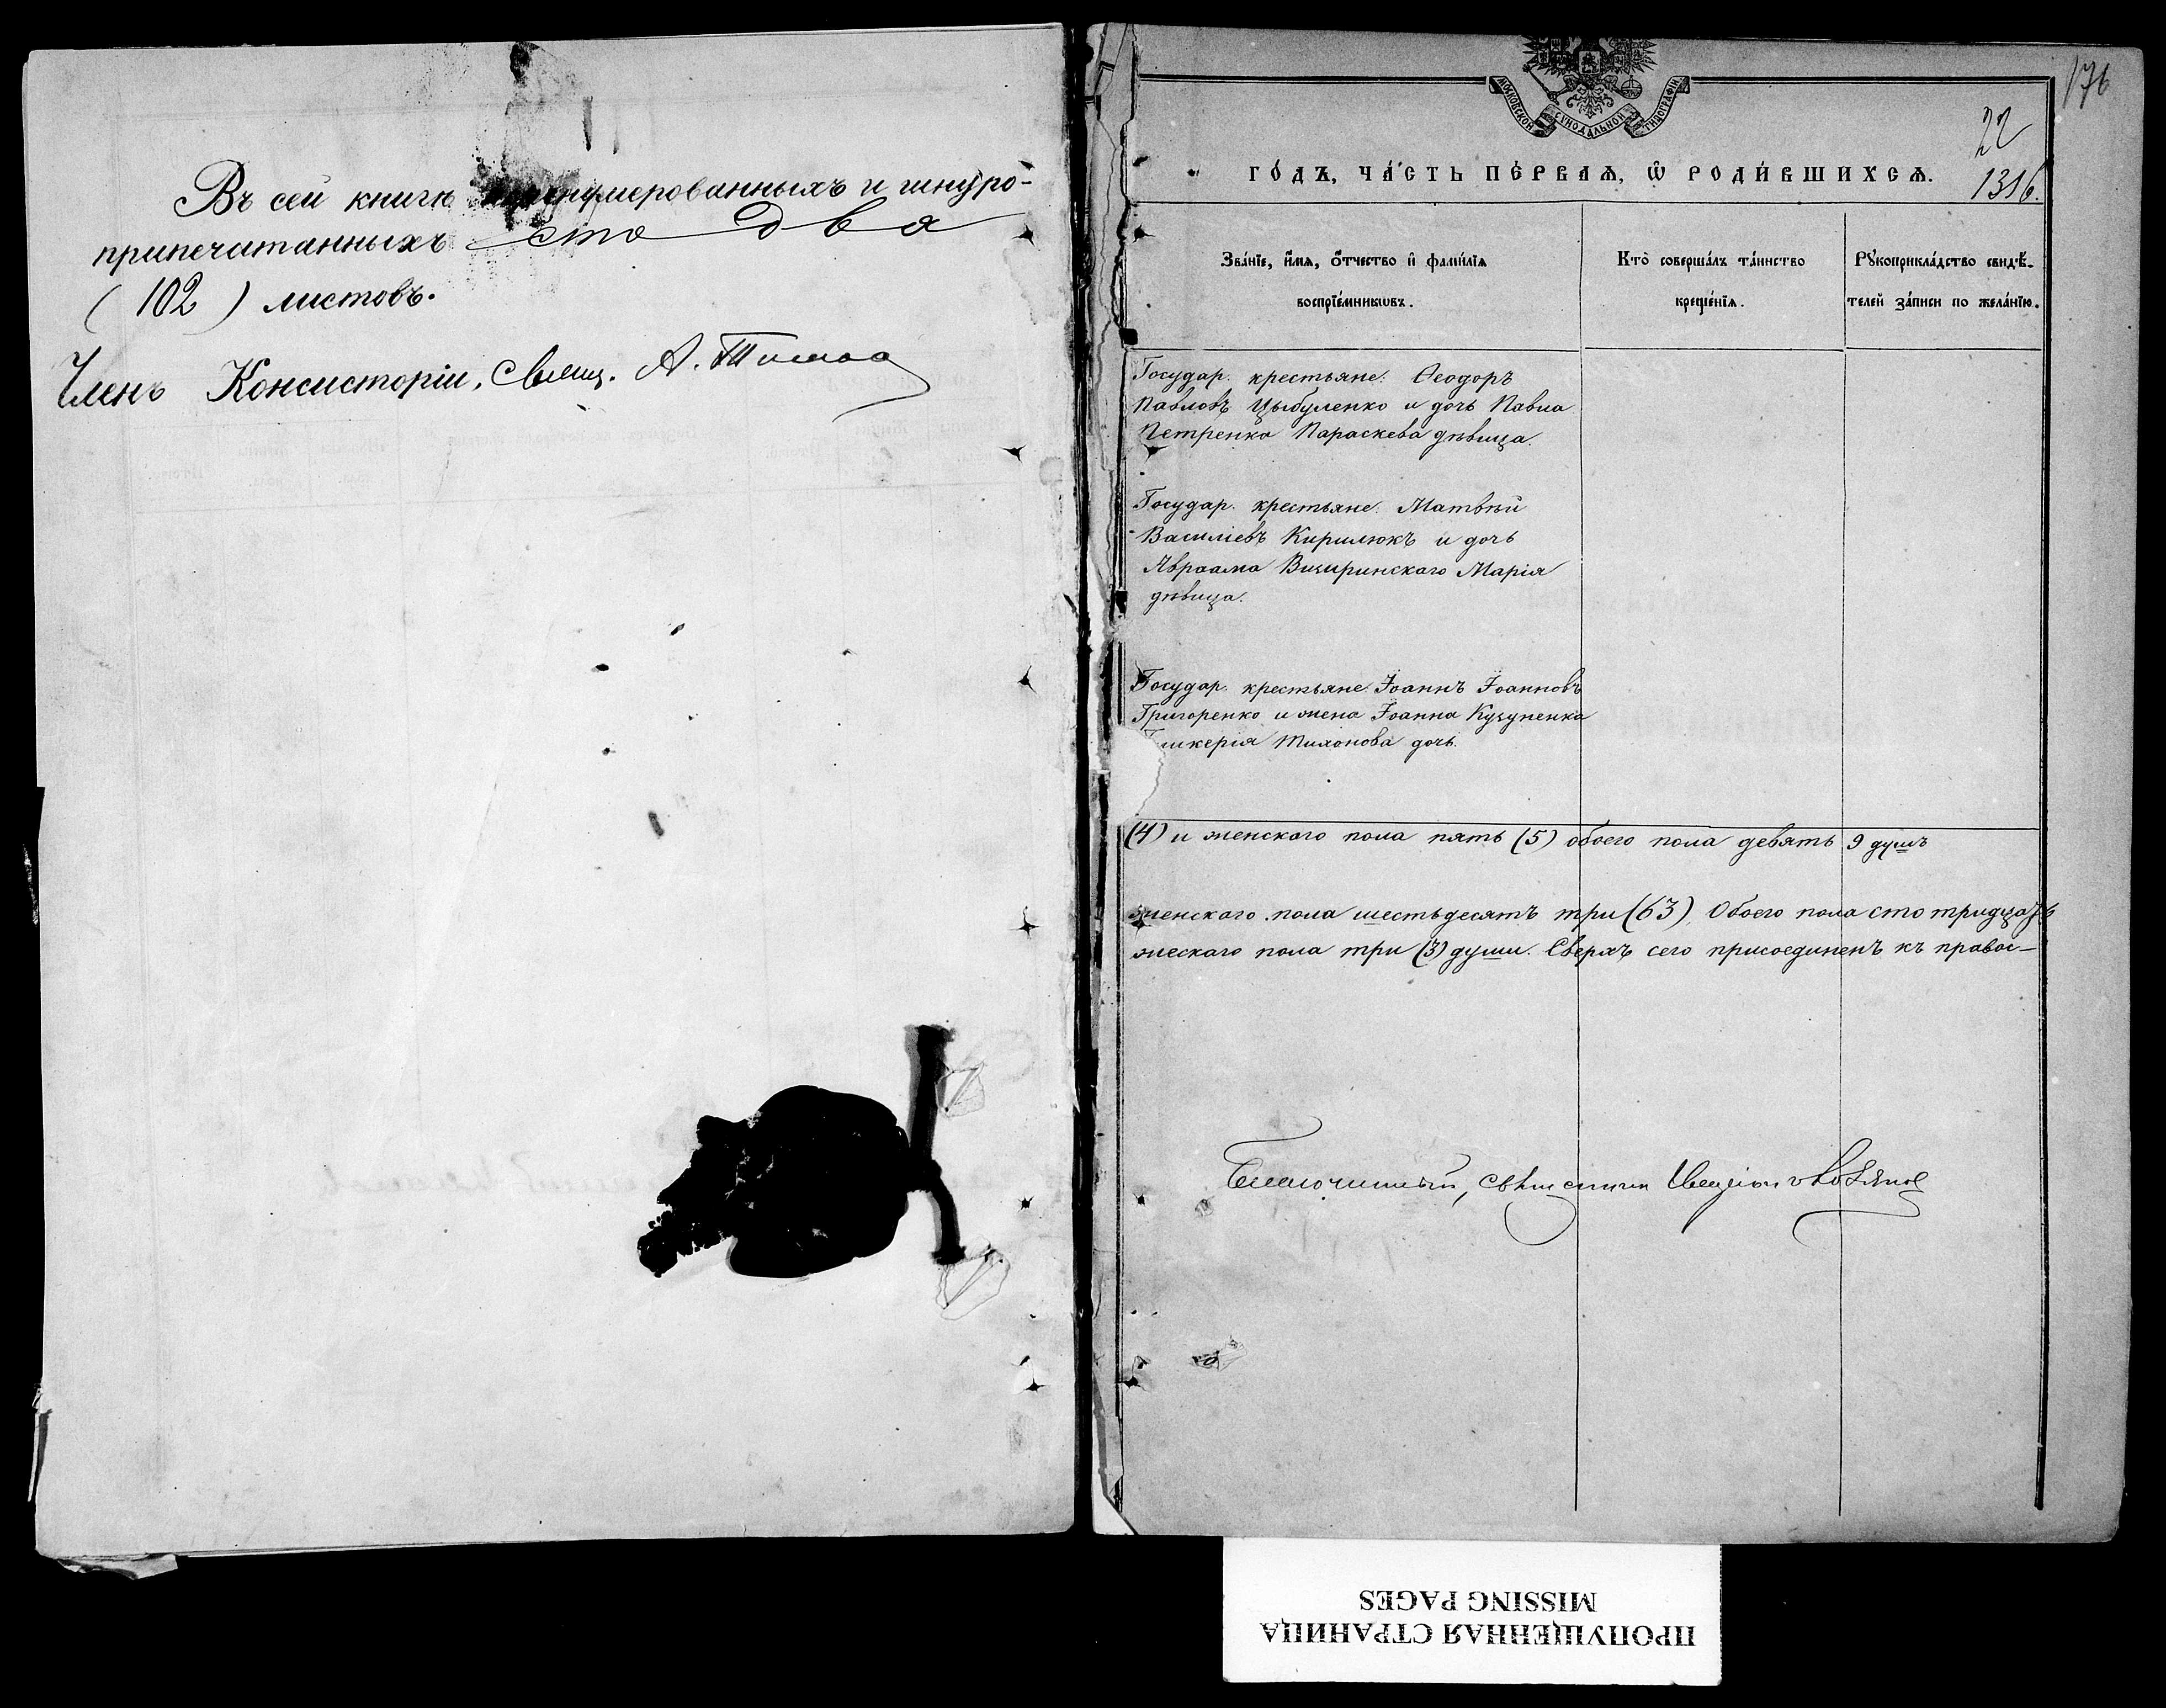 Въ сей книгѣ пронумерованныхъ и шнуро-
припечатанныхъ сто два
(102) листовъ.
Членъ Консисторіи, Свящ. А.
176
МОСКОВСКОЙ СѴНОДАЛЬНОЙ ТИПОГРАФІИ
22
ГО́ДЪ, ЧА́СТЬ ПЕ́РВАѦ, Ѽ РОДИ́ВШИХСѦ.
1316.
Зва́нїе, и́мѧ, ѻ҆́тчество и҆ фами́лїѧ
воспрїе́мникѡвъ.
Кто̀ соверша́лъ та́инство
креще́нїѧ.
Рꙋкоприкла́дство свидѣ́-
телей за́писи по жела́нїю.
Государ. крестьяне: Ѳеодоръ
Павловъ Цыбуленко и дочь Павла
Петренка Параскева дѣвица.
Государ. крестьяне: Матвѣй
Василіевъ Кирилюкъ и дочь
Авраама Марія
дѣвица.
Государ. крестьяне Іоаннъ Іоанновъ
Григоренко и жена Іоанна
Тихонова дочь.
(4) и женскаго пола пять (5) обоего пола девять 9 душъ
женскаго пола шестьдесятъ три (63). Обоего пола сто тридцать
жескаго пола три (3) души. Сверхъ сего присоединенъ къ правос-
Благочинный, священникъ
MISSING PAGES
ПРОПУЩЕННАЯ СТРАНИЦА